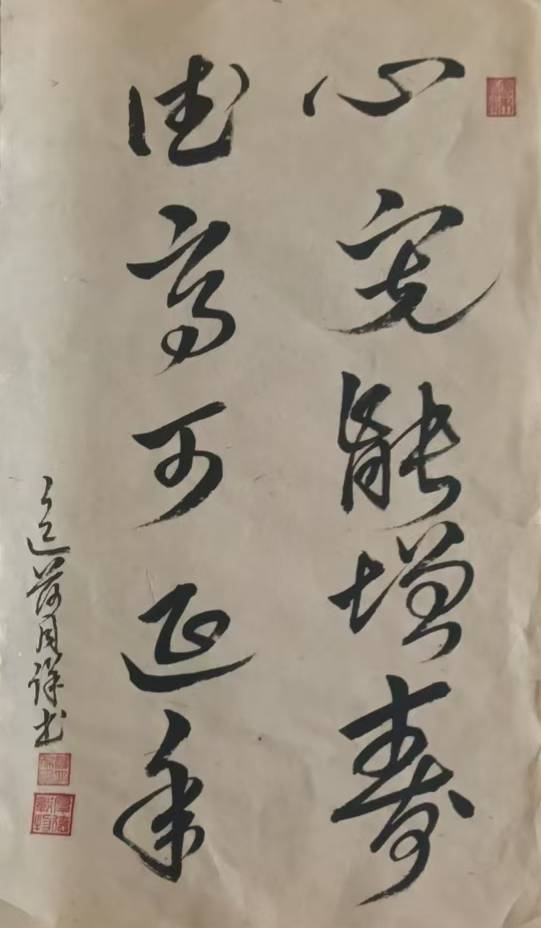 心宽能增寿
德高可延年
书